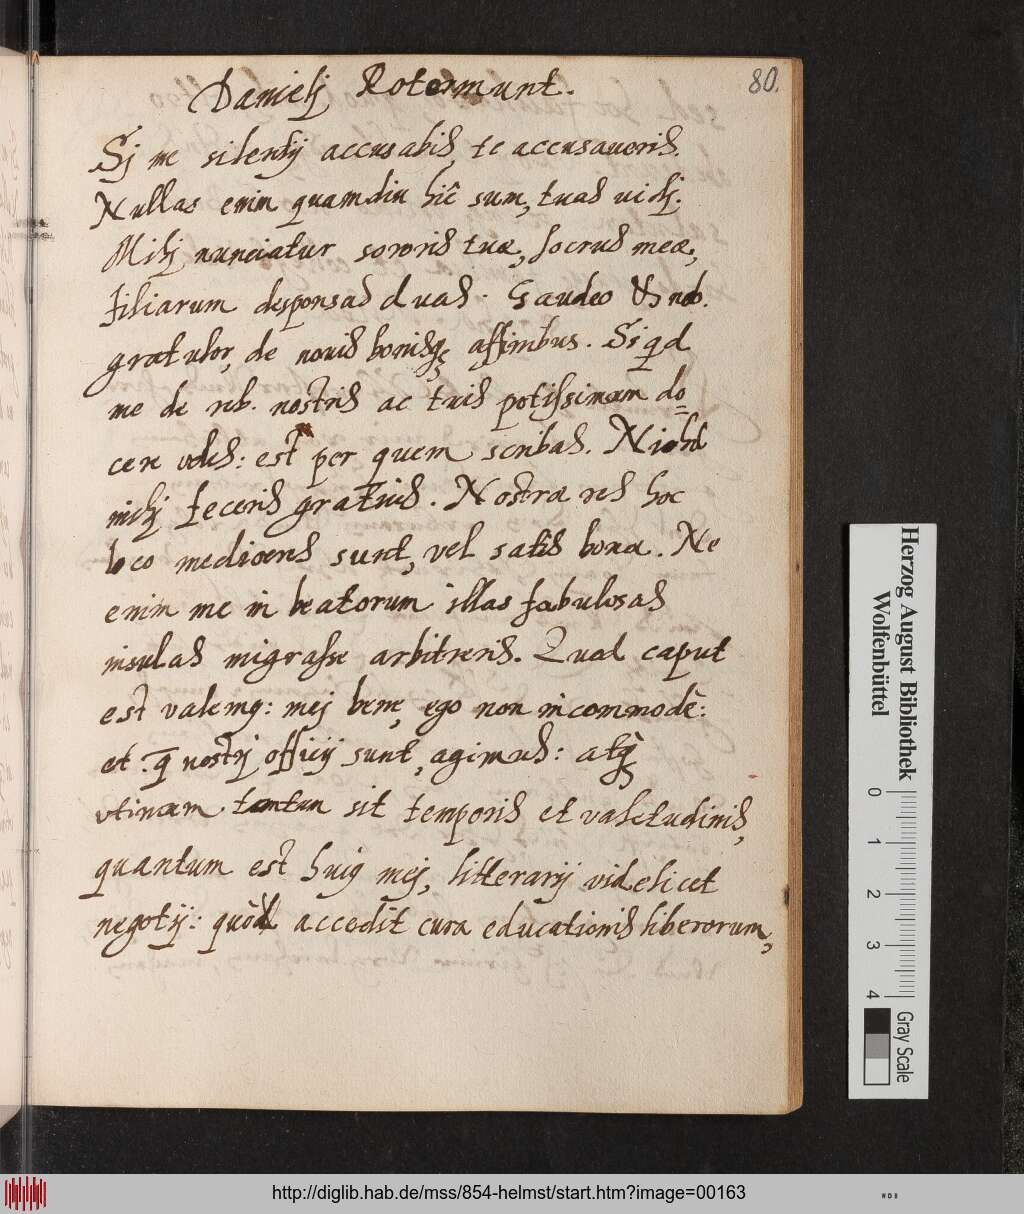 80.
Danielj Rotermunt.
Sj me silentij accusabis, te accusaueris.
Nullas enim quamdiu hîc sum, tuas uidj.
Mihj nunciatur sororis tuæ, socrus meæ,
filiarum desponsas duas. Gaudeo & vob.
gratulor, de nouis bonisq; affinibus. Si qd
me de reb. nostris ac tuis potissimum do=
cere voles: est per quem scribas. Nihil
mihj feceris gratius. Nostræ res hoc
loco mediocres sunt, vel satis bonæ. Ne
enim me in beatorum illas fabulosas
insulas migrasse arbitreris. Quod caput
est valemq: mej bene, ego non incommodè:
et q nostrj officij sunt, agimus: atq;
vtinam tantum sit temporis et valetudinis,
quantum est huiq mej, litterarij videlicet
negotij: quòd accedit cura educationis liberorum,
Herzog August Bibliothek
Wolfenbüttel
0 1 2 3 4
Gray Scale
http://diglib.hab.de/mss/854-helmst/start.htm?image=00163